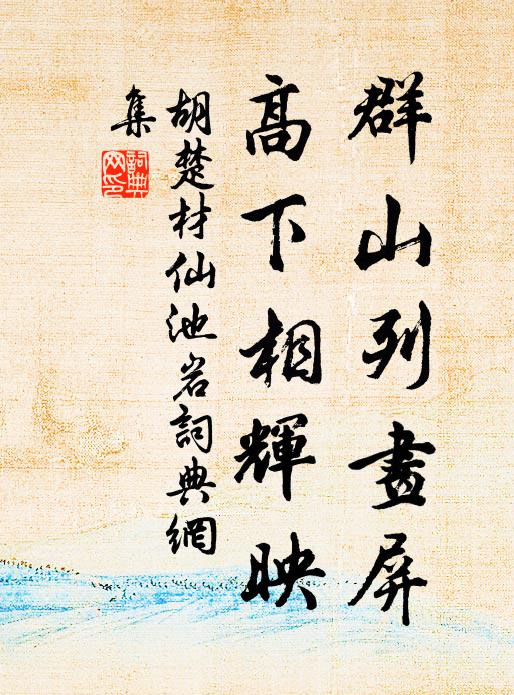 群山列畫屏
高下相輝映
胡楚材仙池岩詞典網
集
詞典
網印